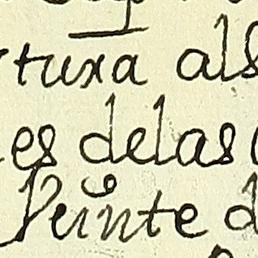 tuxa als
es delas
Veinte d